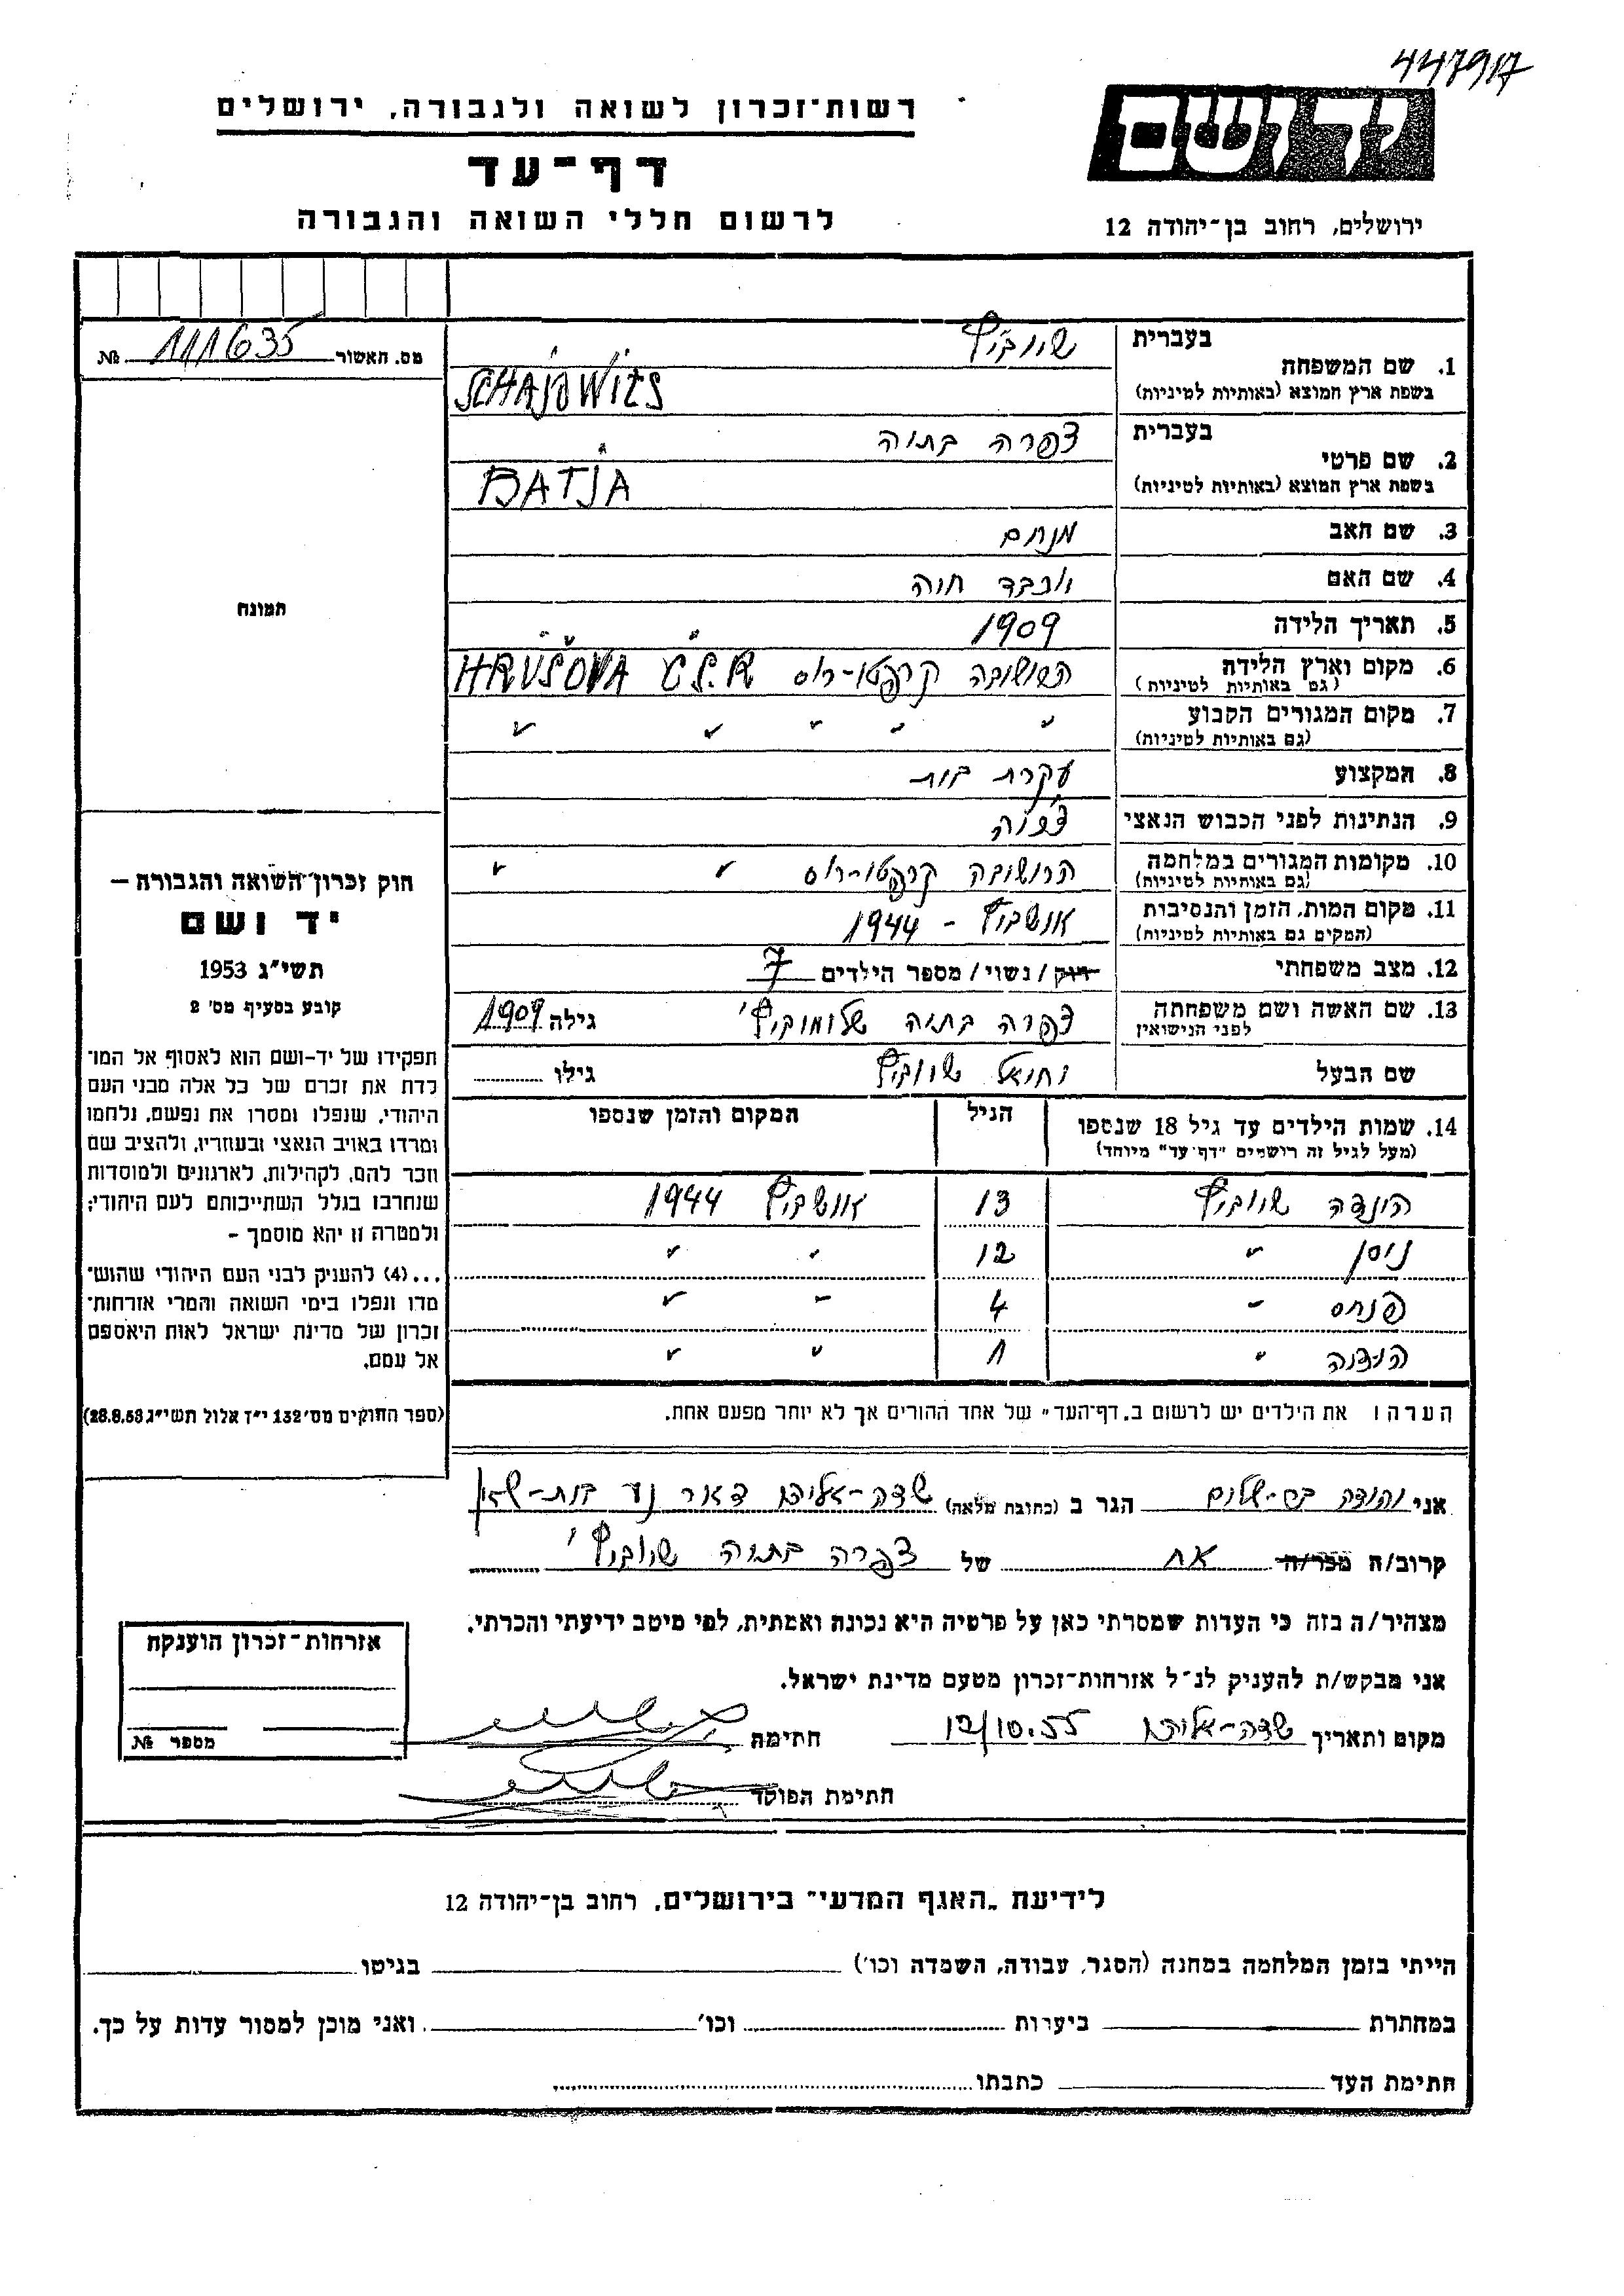 447917
יד ושם
רשות-זכרון לשואה ולגבורה, ירושלים
דף-עד
לרשום חללי השואה והגבורה
ירושלים, רחוב בן-יהודה 12
מס. האשור 111635 №
בעברית
1. שם המשפחה
בשפת ארץ המוצא (באותיות לטיניות) SCHAJOWITS
בעברית צפרה בתיה
2. שם פרטי
בשפת ארץ המוצא (באותיות לטיניות) BATJA
3. שם האב מנחם
4. שם האם יוכבד חיה
5. תאריך הלידה 1909
6. מקום וארץ הלידה הרושובה קרפטו-רוס HRUŠOVA Č.S.R
(גם באותיות לטיניות)
7. מקום המגורים הקבוע " " " " "
(גם באותיות לטיניות)
8. המקצוע עקרת בית
9. הנתינות לפני הכבוש הנאצי
10. מקומות המגורים במלחמה הרושובה קרפטו-רוס " "
(גם באותיות לטיניות)
11. מקום המות, הזמן והנסיבות אושביץ - 1944
(המקים גם באותיות לטיניות)
12. מצב משפחתי רווק / נשוי / מספר הילדים 7
13. שם האשה ושם משפחתה לפני הנישואין צפרה בתיה שלומוביץ' גילה 1909
שם הבעל שיוביץ גילו
14. שמות הילדים עד גיל 18 שנספו
(מעל לגיל זה רושמים "דף-עד" מיוחד)
הגיל
המקום והזמן שנספו
הינדה שיוביץ 13 אושביץ 1944
ניסן " 12 " "
פנחס " 4 " "
" 1 " "
הערה: את הילדים יש לרשום ב„דף-העד" של אחד ההורים אך לא יותר מפעם אחת.
התמונה
חוק זכרון-השואה והגבורה –
יד ושם
תשי"ג 1953
קובע בסעיף מס' 2
תפקידו של יד-ושם הוא לאסוף אל המו־
לדת את זכרם של כל אלה מבני העם
היהודי, שנפלו ומסרו את נפשם, נלחמו
ומרדו באויב הנאצי ובעוזריו, ולהציב שם
וזכר להם, לקהילות, לארגונים ולמוסדות
שנחרבו בגלל השתייכותם לעם היהודי;
ולמטרה זו יהא מוסמך –
...(4) להעניק לבני העם היהודי שהוש־
מדו ונפלו בימי השואה והמרי אזרחות־
זכרון של מדינת ישראל לאות היאספם
אל עמם.
(ספר החוקים מס' 132 י"ז אלול תשי"ג 28.8.53)
אני יהודה בר-שלום הגר ב (כתובת מלאה) שדה-אליהו דאר נע בית-שאן
קרוב/ה מכר/ה אח של צפרה בתיה שיוביץ'
מצהיר/ה בזה כי העדות שמסרתי כאן על פרטיה היא נכונה ואמתית, לפי מיטב ידיעתי והכרתי.
אני מבקש/ת להעניק לנ"ל אזרחות-זכרון מטעם מדינת ישראל.
מקום ותאריך שדה-אליהו 12/10.55 חתימה
חתימת הפוקד
אזרחות-זכרון הוענקה
מספר №
לידיעת „האגף המדעי" בירושלים, רחוב בן-יהודה 12
הייתי בזמן המלחמה במחנה (הסגר, עבודה, השמדה וכו') בגיטו
במחתרת ביערות וכו' ואני מוכן למסור עדות על כך.
חתימת העד כתבתו